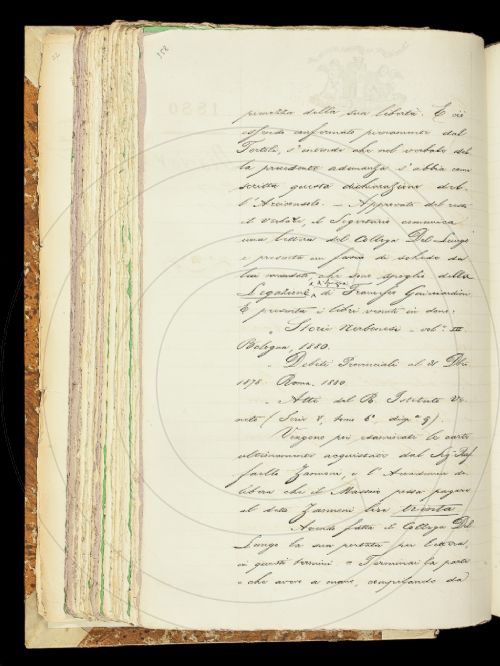 pienezza della sua libertà. E ciò
essendo confermato pienamente dal
Tortoli, s'intende che nel verbale del
la precedente adunanza s'abbia come
scritta questa dichiarazione del
l'Arciconsolo. — Approvato del resto
il verbale, il Segretario comunica
una lettera del Collega Del Lungo
e presenta un fascio di schede da
lui mandate, che sono spoglio della
Legazione di Francesco Guicciardini
E presenta i libri venuti in dono:
„ Storie Nerbonesi - vol. III
Bologna, 1880.
„ Debiti Provinciali al 31 Dbre
1878 - Roma. 1880
„ Atti del R. Istituto Ve
neto (Serie V, tomo 6°, disp.a 9).
Vengono poi esaminate le carte
ultimamente acquistate dal Sig. Raf
faello Zannoni, e l'Accademia de
libera che il Massaio possa pagare
al detto Zannoni lire trenta.
Avendo fatta il Collega Del
Lungo la sua per lettera,
in questi termini "Terminai la parte
che avevo a mano, compilando da
351
1880